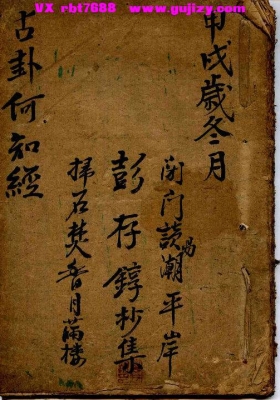 VX rbt7688 www.gujizy.com
甲戌歲冬月
閉门談易潮平岸
彭存錞抄集
掃石焚香月滿樓
占卦何知經